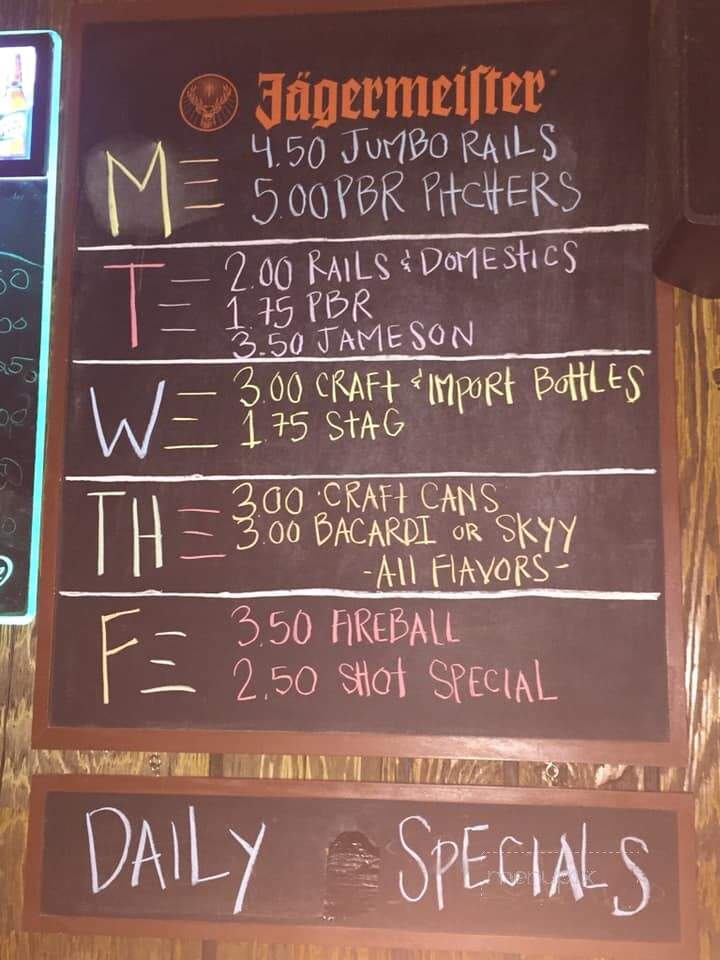 Jägermeister
M 4.50 JUMBO RAILS
5.00 PBR PITCHERS
T 2.00 RAILS & DOMESTICS
1.75 PBR
3.50 JAMESON
W 3.00 CRAFT & IMPORT BOTTLES
1.75 STAG
TH 3.00 CRAFT CANS
3.00 BACARDI OR SKYY
-All FlAVORS-
F 3.50 FIREBALL
2.50 SHOT SPECIAL
DAILY SPECIALS